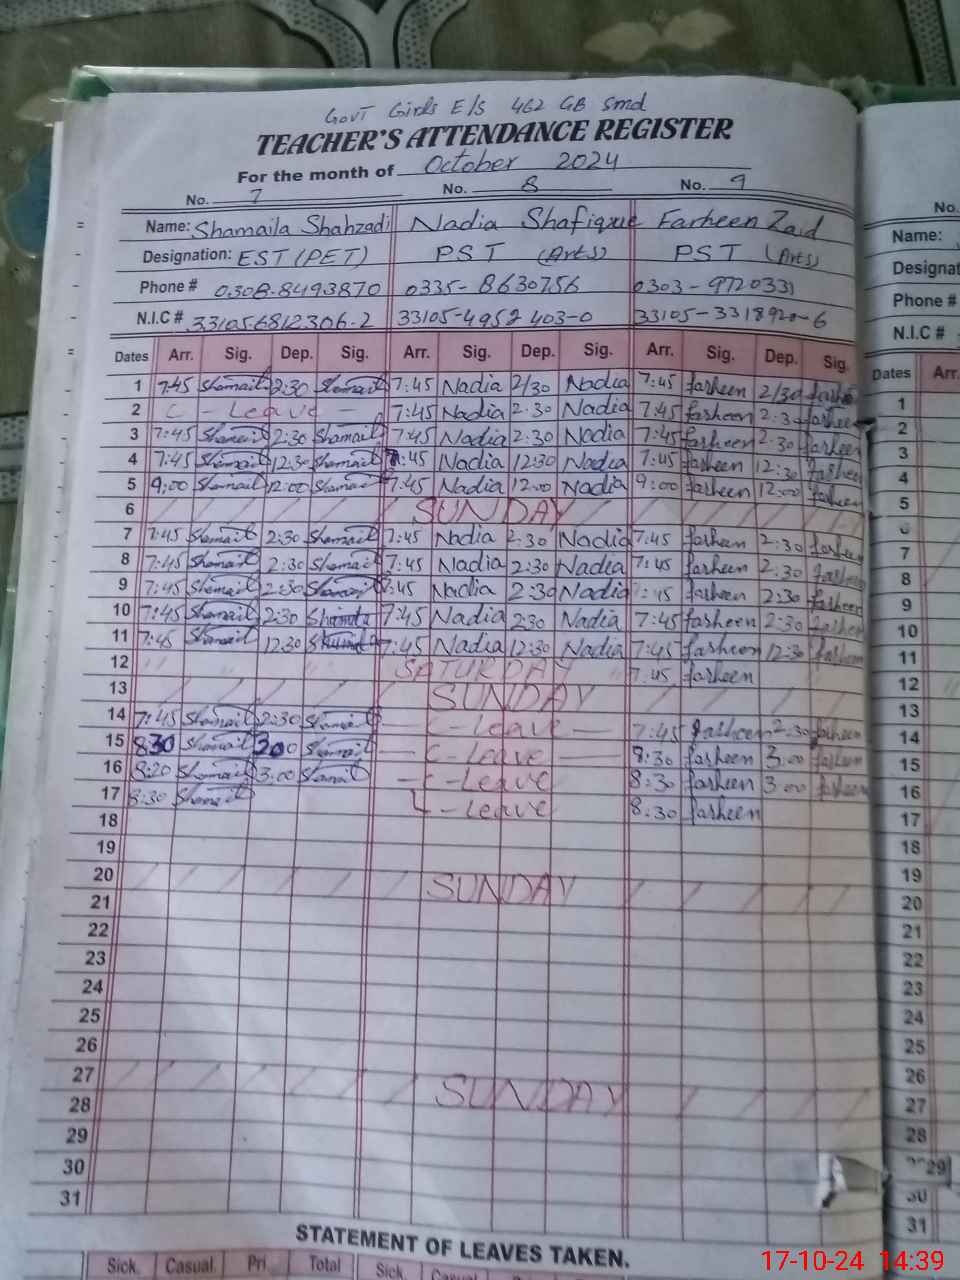 Govt Girls E/S 462 GB Smd
TEACHER'S ATTENDANCE REGISTER
For the month of October 2024
No. 7 No. 8 No. 9
Name: Shamaila Shahzadi Nadia Shafique Farheen Zaid
Designation: EST (PET) PST (Arts) PST (Arts)
Phone # 0308-8493870 0335-8630756 0303-9720331
N.I.C # 33105-6812306-2 33105-4952403-0 33105-3318920-6
Dates Arr. Sig. Dep. Sig. Arr. Sig. Dep. Sig. Arr. Sig. Dep. Sig.
1 7:45 Shamail 2:30 Shamail 7:45 Nadia 2/30 Nadia 7:45 farheen 2/30 farheen
2 C - Leave - 7:45 Nadia 2:30 Nadia 7:45 farheen 2:30 farheen
3 7:45 Shamail 2:30 Shamail 7:45 Nadia 2:30 Nadia 7:45 farheen 2:30 farheen
4 7:45 Shamail 12:30 Shamail 7:45 Nadia 12:30 Nadia 7:45 farheen 12:30 farheen
5 9:00 Shamail 12:00 Shamail 7:45 Nadia 12:00 Nadia 9:00 farheen 12:00 farheen
6 SUNDAY
7 7:45 Shamail 2:30 Shamail 7:45 Nadia 2:30 Nadia 7:45 farheen 2:30 farheen
8 7:45 Shamail 2:30 Shamail 7:45 Nadia 2:30 Nadia 7:45 farheen 2:30 farheen
9 7:45 Shamail 2:30 Shamail 7:45 Nadia 2:30 Nadia 7:45 farheen 2:30 farheen
10 7:45 Shamail 2:30 7:45 Nadia 2:30 Nadia 7:45 farheen 2:30 farheen
11 7:45 Shamail 12:30 7:45 Nadia 12:30 Nadia 7:45 farheen 12:30 farheen
12 SATURDAY 7:45 farheen
13 SUNDAY
14 7:45 Shamail 2:30 Shamail - C - Leave - 7:45 farheen 2:30 farheen
15 8:30 Shamail 3:00 Shamail - C - Leave - 8:30 farheen 3:00 farheen
16 8:20 Shamail 3:00 Shamail - C - Leave 8:30 farheen 3:00 farheen
17 8:30 Shamail C - Leave 8:30 farheen
18
19
20 SUNDAY
21
22
23
24
25
26
27 SUNDAY
28
29
30
31
STATEMENT OF LEAVES TAKEN.
Sick. Casual. Pri. Total Sick.
No.
Name:
Designat
Phone #
N.I.C #
Dates Arr.
1
2
3
4
5
6
7
8
9
10
11
12
13
14
15
16
17
18
19
20
21
22
23
24
25
26
27
28
29
30
31
17-10-24 14:39